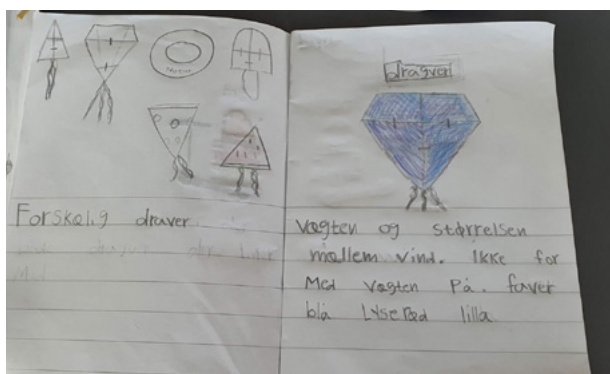 Forskelig draver
dragver
vægten og størrelsen
mellem vind. ikke for
Med vægten på. faver
blå Lyserød lilla